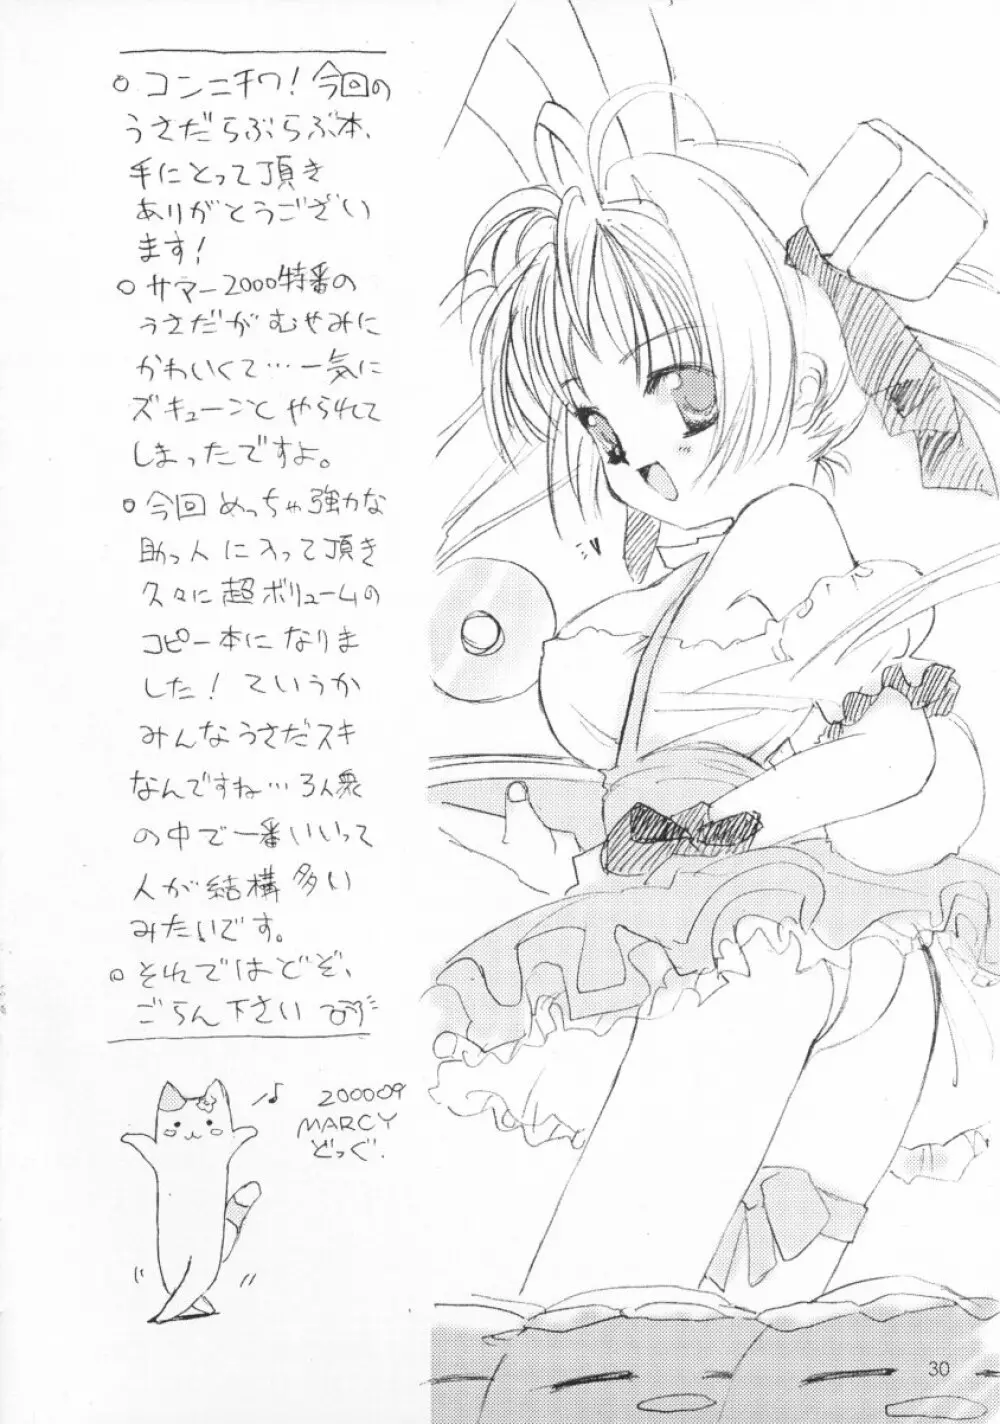 ○ コンニチワ！今回の
うさだらぶらぶ本、
手にとって頂き
ありがとうござい
ます！
○ サマー2000特番の
うさだがむやみに
かわいくて…一気に
ズキューンとやられて
しまったですよ。
○ 今回めっちゃ強力な
助っ人に入って頂き
久々に超ボリュームの
コピー本になりま
した！ていうか
みんなうさだスキ
なんですね…3人衆
の中で一番いいって
人が結構多い
みたいです。
○ それではどぞ、
ごらん下さい
♪
200009
MARCY
どっぐ.
30